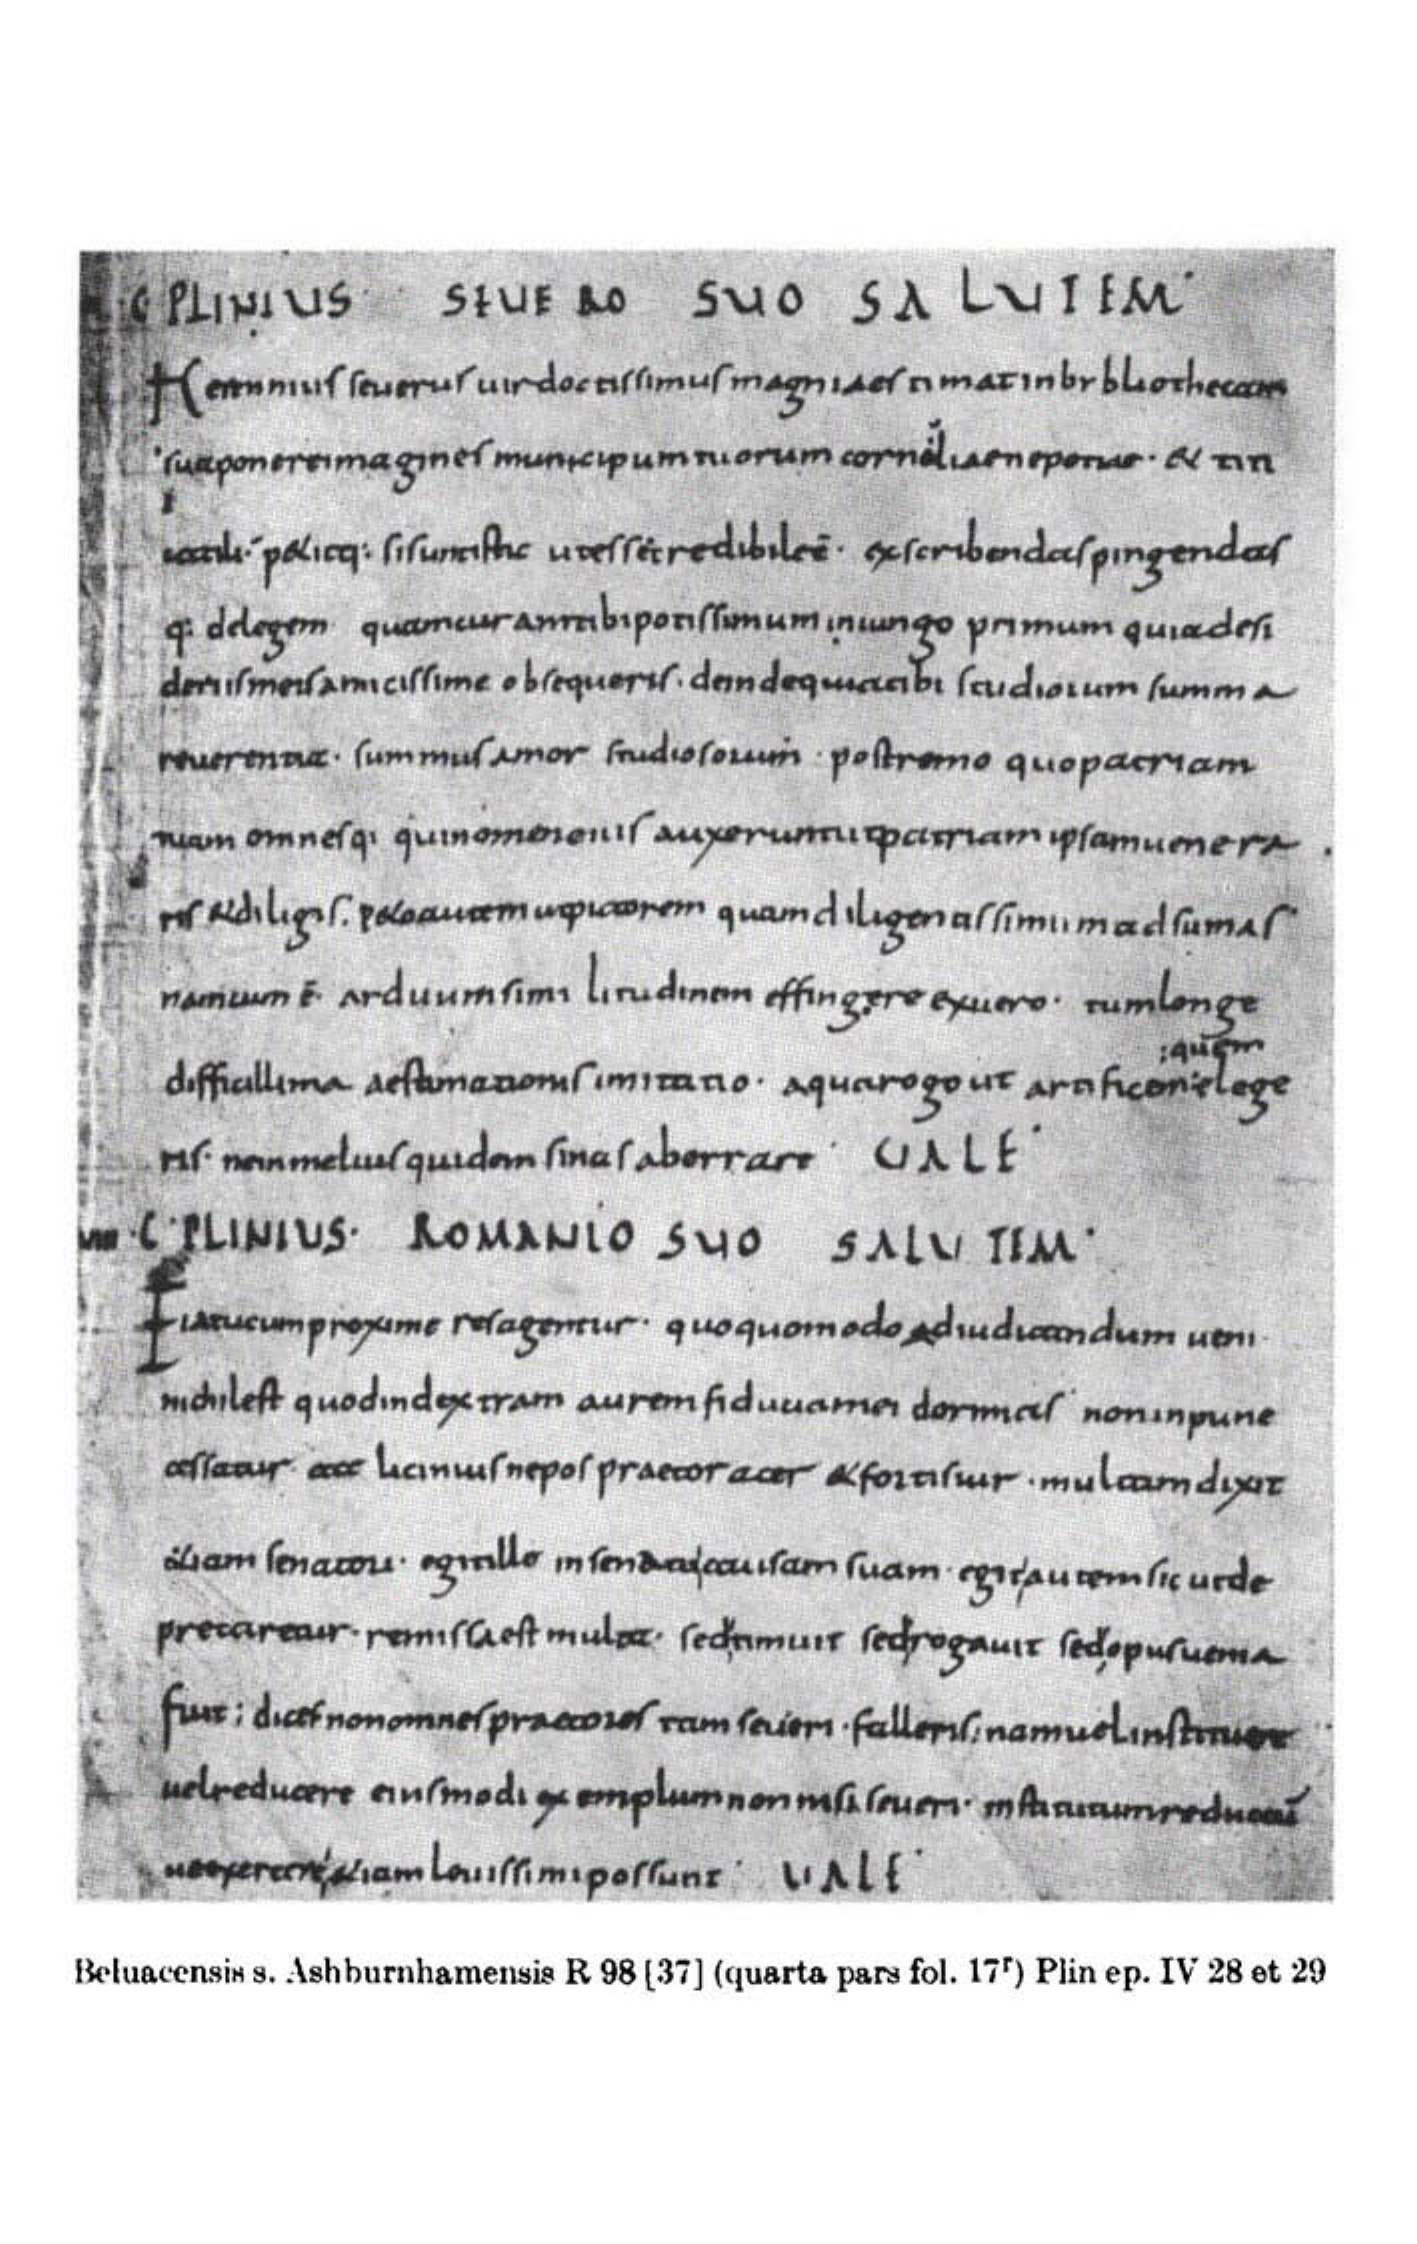 C PLINIUS SEUERO SUO SALUTEM
Herennius seuerus uir doctissimus magni aestimat in br bliothecam
sua ponere imagines municipum tuorum corneliae nepotis · & titi
catili · p&icq: si sunt istic ut esse credibile ē · exscribendas pingendas
q: delegem quam curam tibi potissimum iniungo primum quia desi
deriis meis amicissime obsequeris · deinde quia tibi studiorum summa
reuerentia · summus amor studiosorum · postremo quo patriam
tuam omnesq; qui nomen eius auxerunt ut patriam ipsam uenera
ris & diligis · p&o autem ut pictorem quam diligentissimum adsumas
nam cum ē arduum similitudinem effingere ex uero · tum longe
:quem
difficillima aestimationis imitatio · a qua rogo ut artificem elege
ris · ne in melius quidem sinas aberrare · UALE
VIIII · C · PLINIUS · ROMANIO SUO SALUTEM
Eia tu cum proxime res agentur · quoquo modo ad iudicandum ueni
nichil est quod in dextram aurem fiducia mei dormias non inpune
cessatur ecce licinius nepos praetor acer & fortis uir · multam dixit
&iam senatori · egit ille in senatu causam suam · egit autem sic ut de
precaretur · remissa est multa · sed timuit sed rogauit sed opus uenia
fuit ; dices non omnes praetores tam seueri · falleris; nam uel instituere
uel reducere eiusmodi exemplum non nisi seueri · institutum reductū
ue exercere &iam leuissimi possunt · UALE
Beluacensis s. Ashburnhamensis R 98 [37] (quarta pars fol. 17r) Plin ep. IV 28 et 29